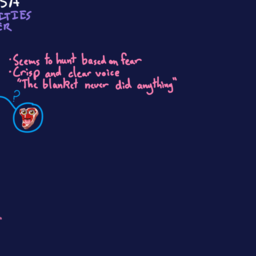 ITIES
ER
·Seems to hunt based on fear
·Crisp and clear voice
"The blanket never did anything"
?